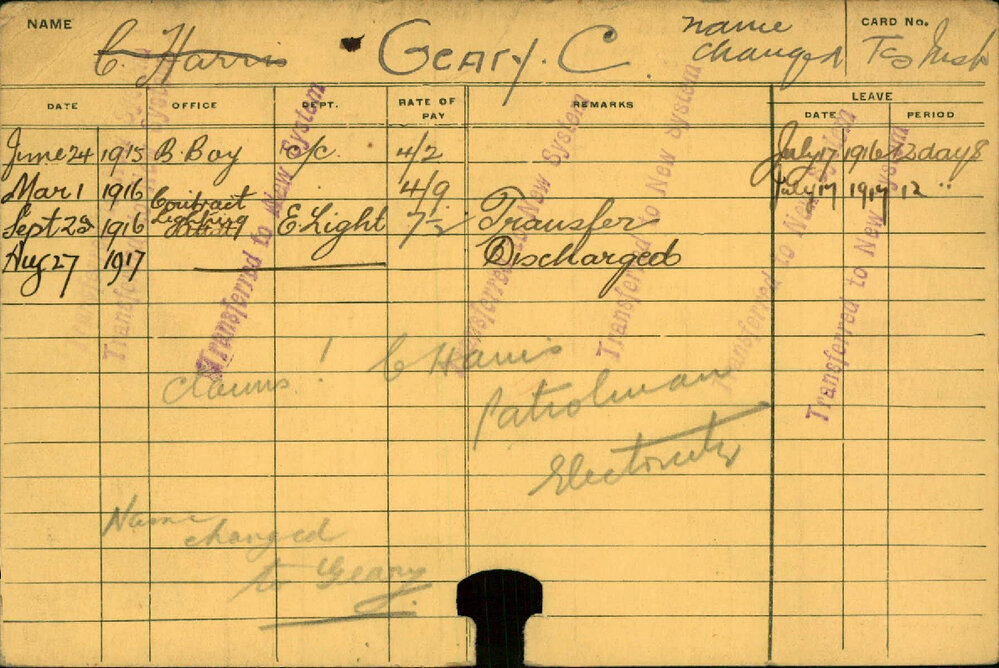 NAME
C. Harris
GEARY. C.
name changed
CARD No.
DATE OFFICE DEPT. RATE OF PAY REMARKS LEAVE
DATE PERIOD
June 24 1915 B. Boy c/c. 4/2 July 17 1916 12 days
Mar 1 1916 4/9 July 17 1917 12 "
Sept 22 1916 Contract Lighting E Light Transfer
Aug 27 1917 Discharged
Transferred to New System
Transferred to New System
Transferred to New System
Transferred to New System
Transferred to New System
Transferred to New System
Transferred to New System
claims! C Harris
Patrolman
Name
changed
to Geary